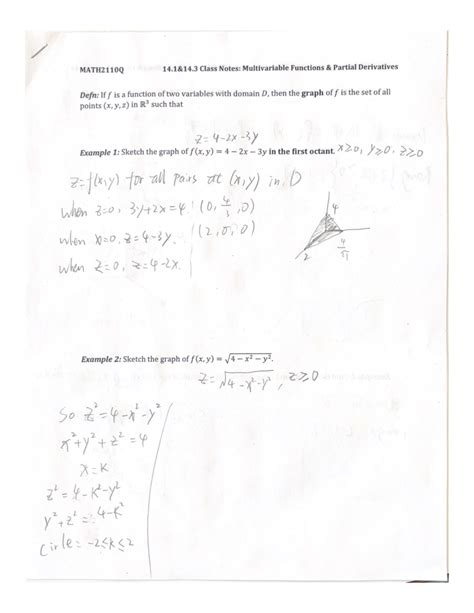 MATH2110Q 14.1&14.3 Class Notes: Multivariable Functions & Partial Derivatives
Defn: If f is a function of two variables with domain D, then the graph of f is the set of all
points (x, y, z) in ℝ³ such that
z = 4-2x-3y
Example 1: Sketch the graph of f(x, y) = 4 − 2x − 3y in the first octant. x≥0, y≥0, z≥0
z=f(x,y) for all pairs (x,y) in D
when z=0, 3y+2x=4 (0, 4/3, 0)
when x=0, z=4-3y. (2, 0, 0)
when z=0, z=4-2x.
4
2
Example 2: Sketch the graph of f(x, y) = √4 − x² − y².
z=√4-x²-y², z≥0
So z²=4-x²-y²
x²+y²+z²=4
x=k
z²=4-k²-y²
y²+z²=4-k²
Circle: -2≤k≤2